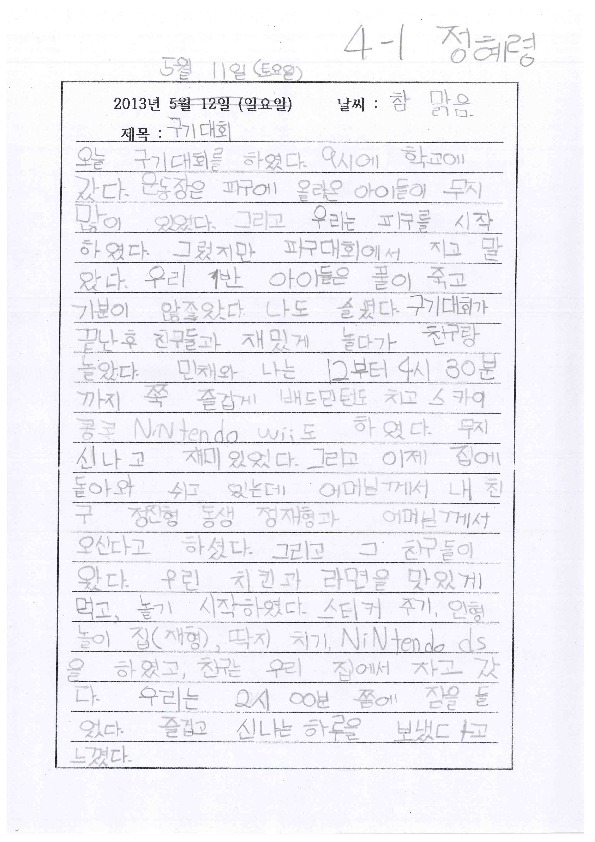 4-1 정혜령
5월 11일 (토요일)
2013년 5월 12일 (일요일) 날씨 : 참 맑음
제목 : 구기대회
오늘 구기대회를 하였다. 9시에 학교에
갔다. 운동장은 파구에 올라온 아이들이 무지
많이 있었다. 그리고 우리는 피구를 시작
하였다. 그렇지만 파구대회에서 지고 말
았다. 우리 1반 아이들은 풀이 죽고
기분이 않좋았다. 나도 슬펐다. 구기대회가
끝난후 친구들과 재밌게 놀다가 친구랑
놀았다. 민재와 나는 12부터 4시 30분
까지 쭉 즐겁게 배드민턴도 치고 스카이
콩콩 NiNtendo wii도 하였다. 무지
신나고 재미있었다. 그리고 이제 집에
돌아와 쉬고 있는데 어머님께서 내 친
구 정진형 동생 정재형과 어머님께서
오신다고 하셨다. 그리고 그 친구들이
왔다. 우린 치킨과 라면을 맛있게
먹고, 놀기 시작하였다. 스티커 주기, 인형
놀이 집(재형), 딱지 치기, NiNtendo ds
을 하였고, 친구는 우리 집에서 자고 갔
다. 우리는 2시 00분 쯤에 잠을 들
었다. 즐겁고 신나는 하루을 보냈다고
느꼈다.